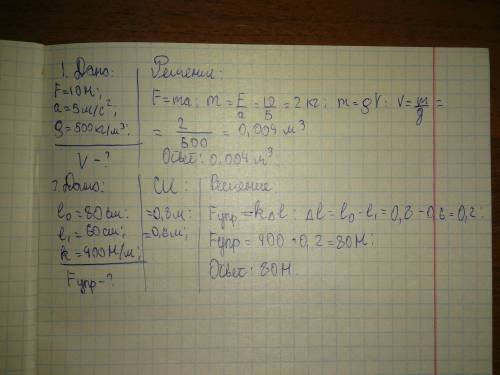 1. Дано:
F=10Н;
a=5м/с²;
ρ=500кг/м³;
V-?
Решение:
F=ma; m=F/a=10/5=2кг; m=ρV; V=m/ρ=
=2/500=0,004м³
Ответ: 0,004м³.
2. Дано:
l₀=80см;
l₁=60см;
k=400Н/м;
Fупр-?
СИ:
=0,8м;
=0,6м;
Решение
Fупр=kΔl; Δl=l₀-l₁=0,8-0,6=0,2;
Fупр=400·0,2=80Н;
Ответ: 80Н.